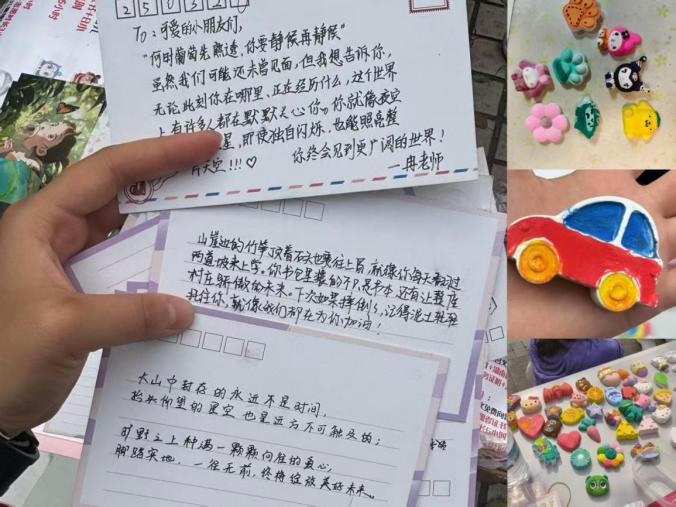 To：可爱的小朋友们，
"何时葡萄先熟透，你要静候再静候"
虽然我们可能还未曾见面，但我想告诉你，
无论此刻你在哪里，正在经历什么，这个世界
上有许多人都在默默关心你。你就像夜空
星，即使独自闪烁，也能照亮整
片天空!!!♡ 你终会见到更广阔的世界！
—冉老师
山崖边的竹笋顶着石头也要往上冒，就像你每天翻过
两道坡来上学。你书包里装的不只是书本，还有让整座
村庄骄傲的未来。下次如果摔倒了，记得泥土
托住你，就像我们都在为你加油！
大山中封存的永远不是时间，
抬头仰望的星空 也是远方不可触及的；
旷野之上种满一颗颗向阳的真心，
脚踏实地，一往无前，终将绽放美好未来。